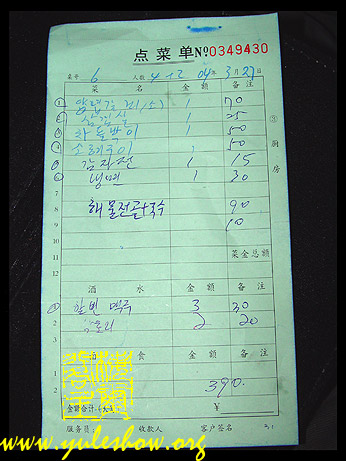 点菜单 № 0349430
桌号 6 人数 4 -2 04年 3月 27日
菜名 金额 备注
① 양념갈비(소) 1 70
② 삼겹살 1 25
③ 차돌박이 1 50
④ 소혀구이 1 50
⑤ 감자전 1 15
⑥ 냉면 1 30
7
8 해물전골+국수 90
9 10
10
11 菜金总额
12
② 厨房
酒水 金额 备注
① 할빈 맥주 3 30
2 2 20
3
酒食 金额 备注
1
2 390.
金额合计(大写) ¥
服务员: 收款人 客户签名
www.yuleshow.org